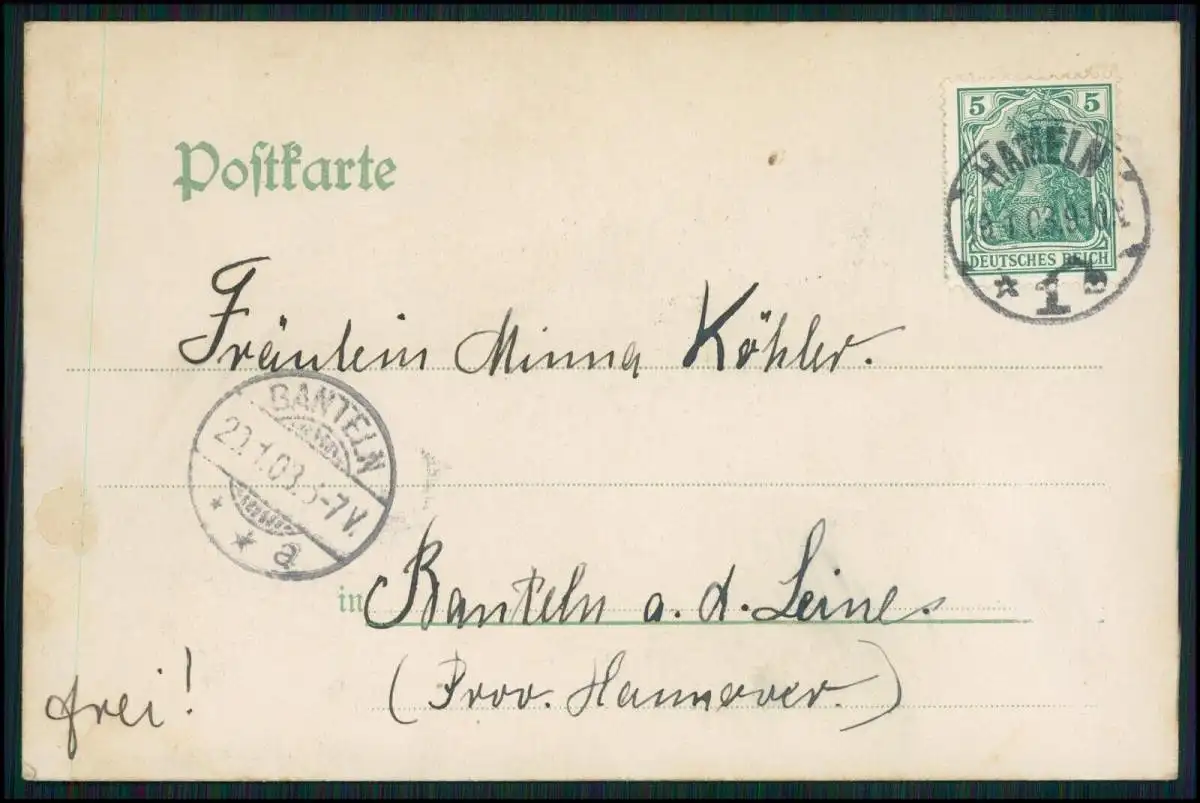 Postkarte
5 5
DEUTSCHES REICH
HAMELN
1
Fräulein Minna Köhler.
BANTELN
a
in Banteln a. d. Leine.
(Prov. Hannover.)
frei!